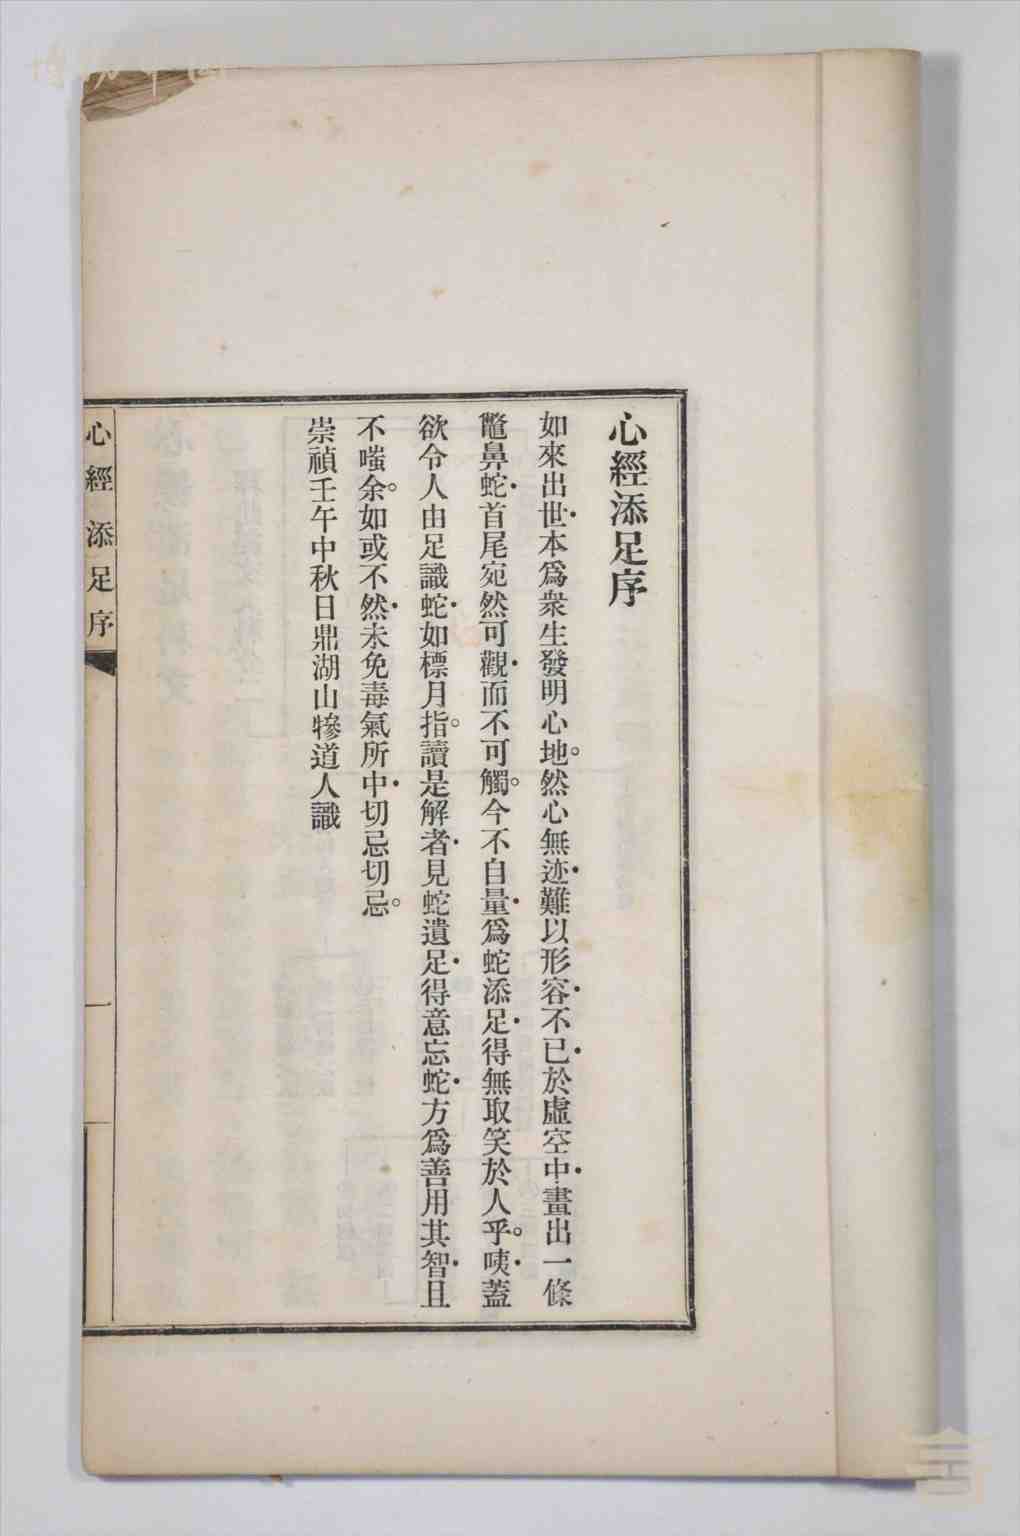 心經添足序
如來出世·本爲衆生發明心地。然心無迹·難以形容·不已·於虛空中·畫出一條
鼈鼻蛇·首尾宛然可觀·而不可觸。今不自量·爲蛇添足·得無取笑於人乎。咦·蓋
欲令人由足識蛇·如標月指。讀是解者·見蛇遺足·得意忘蛇·方爲善用其智·且
不嗤余。如或不然·未免毒氣所中·切忌切忌。
崇禎壬午中秋日鼎湖山犙道人識
心經添足序
一